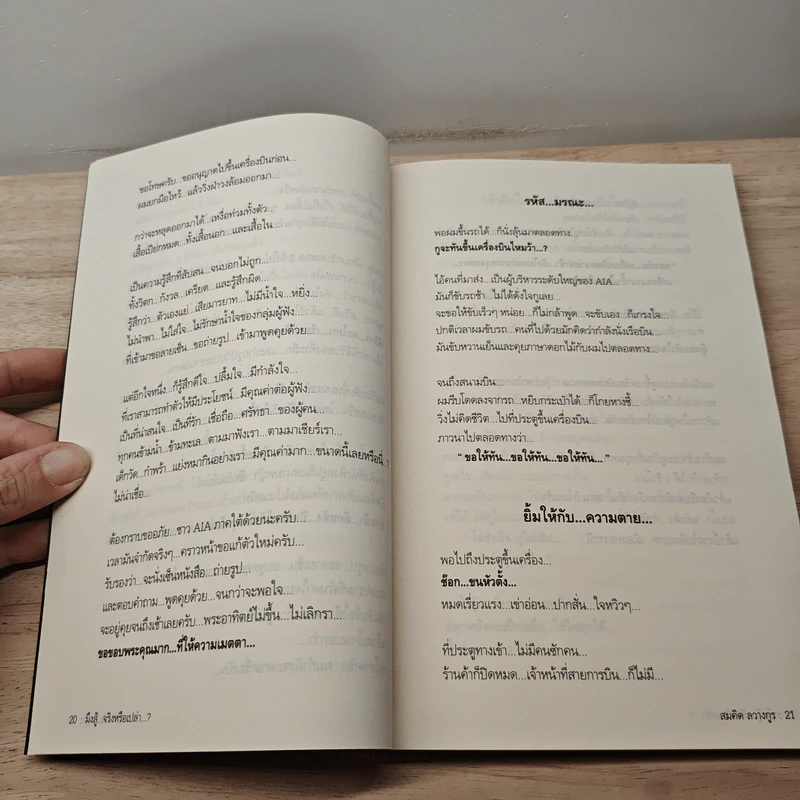 ขอโทษครับ...ขออนุญาตไปขึ้นเครื่องบินก่อน...
ผมยกมือไหว้...แล้ววิ่งฝ่าวงล้อมออกมา...
กว่าจะหลุดออกมาได้...เหงื่อท่วมทั้งตัว...
เสื้อเปียกหมด...ทั้งเสื้อนอก...และเสื้อใน...
เป็นความรู้สึกที่สับสน...จนบอกไม่ถูก...
ทั้งวิตก...กังวล...เครียด...และรู้สึกผิด...
รู้สึกว่า...ตัวเองแย่...เสียมารยาท...ไม่มีน้ำใจ...หยิ่ง...
ไม่นำพา...ไม่ใส่ใจ...ไม่รักษาน้ำใจของกลุ่มผู้ฟัง...
ที่เข้ามาขอลายเซ็น...ขอถ่ายรูป...เข้ามาพูดคุยด้วย...
แต่อีกใจหนึ่ง...ก็รู้สึกดีใจ...ปลื้มใจ...มีกำลังใจ...
ที่เราสามารถทำตัวให้มีประโยชน์...มีคุณค่าต่อผู้ฟัง...
เป็นที่น่าสนใจ...เป็นที่รัก...เชื่อถือ...ศรัทธา...ของผู้คน...
ทุกคนข้ามน้ำ...ข้ามทะเล...ตามมาฟังเรา...ตามมาเชียร์เรา...
เด็กวัด...กำพร้า...แย่งหมากินอย่างเรา...มีคุณค่ามาก...ขนาดนี้เลยหรือนี่...?
ไม่น่าเชื่อ...
ต้องกราบขออภัย...ชาว AIA ภาคใต้ด้วยนะครับ...
เวลามันจำกัดจริงๆ...คราวหน้าขอแก้ตัวใหม่ครับ...
รับรองว่า...จะนั่งเซ็นหนังสือ...ถ่ายรูป...
และตอบคำถาม...พูดคุยด้วย...จนกว่าจะพอใจ...
จะอยู่คุยจนถึงเช้าเลยครับ...พระอาทิตย์ไม่ขึ้น...ไม่เลิกรา...
ขอขอบพระคุณมาก...ที่ให้ความเมตตา...
20 : มึงสู้...จริงหรือเปล่า...?
รหัส...มรณะ...
พอผมขึ้นรถได้...ก็นั่งลุ้นมาตลอดทาง...
กูจะทันขึ้นเครื่องบินไหมว้า...?
ไอ้คนที่มาส่ง...เป็นผู้บริหารระดับใหญ่ของ AIA...
มันก็ขับรถช้า...ไม่ได้ดั่งใจกูเลย...
จะขอให้ขับเร็วๆ หน่อย...ก็ไม่กล้าพูด...จะขับเอง...ก็เกรงใจ
ปกติเวลาผมขับรถ...คนที่ไปด้วยมักคิดว่ากำลังนั่งเรือบิน...
มันขับหวานเย็นและคุยภาษาดอกไม้กับผมไปตลอดทาง...
จนถึงสนามบิน...
ผมรีบโดดลงจากรถ...หยิบกระเป๋าได้...ก็โกยทางชี้...
วิ่งไม่คิดชีวิต...ไปที่ประตูขึ้นเครื่องบิน...
ภาวนาไปตลอดทางว่า...
“ ขอให้ทัน...ขอให้ทัน...ขอให้ทัน... ”
ยิ้มให้กับ...ความตาย...
พอไปถึงประตูขึ้นเครื่อง...
ช๊อก...ขนหัวตั้ง...
หมดเรี่ยวแรง...เข่าอ่อน...ปากสั่น...ใจหวิวๆ...
ที่ประตูทางเข้า...ไม่มีคนซักคน...
ร้านค้าก็ปิดหมด...เจ้าหน้าที่สายการบิน...ก็ไม่มี...
สมคิด ลวางกูร : 21